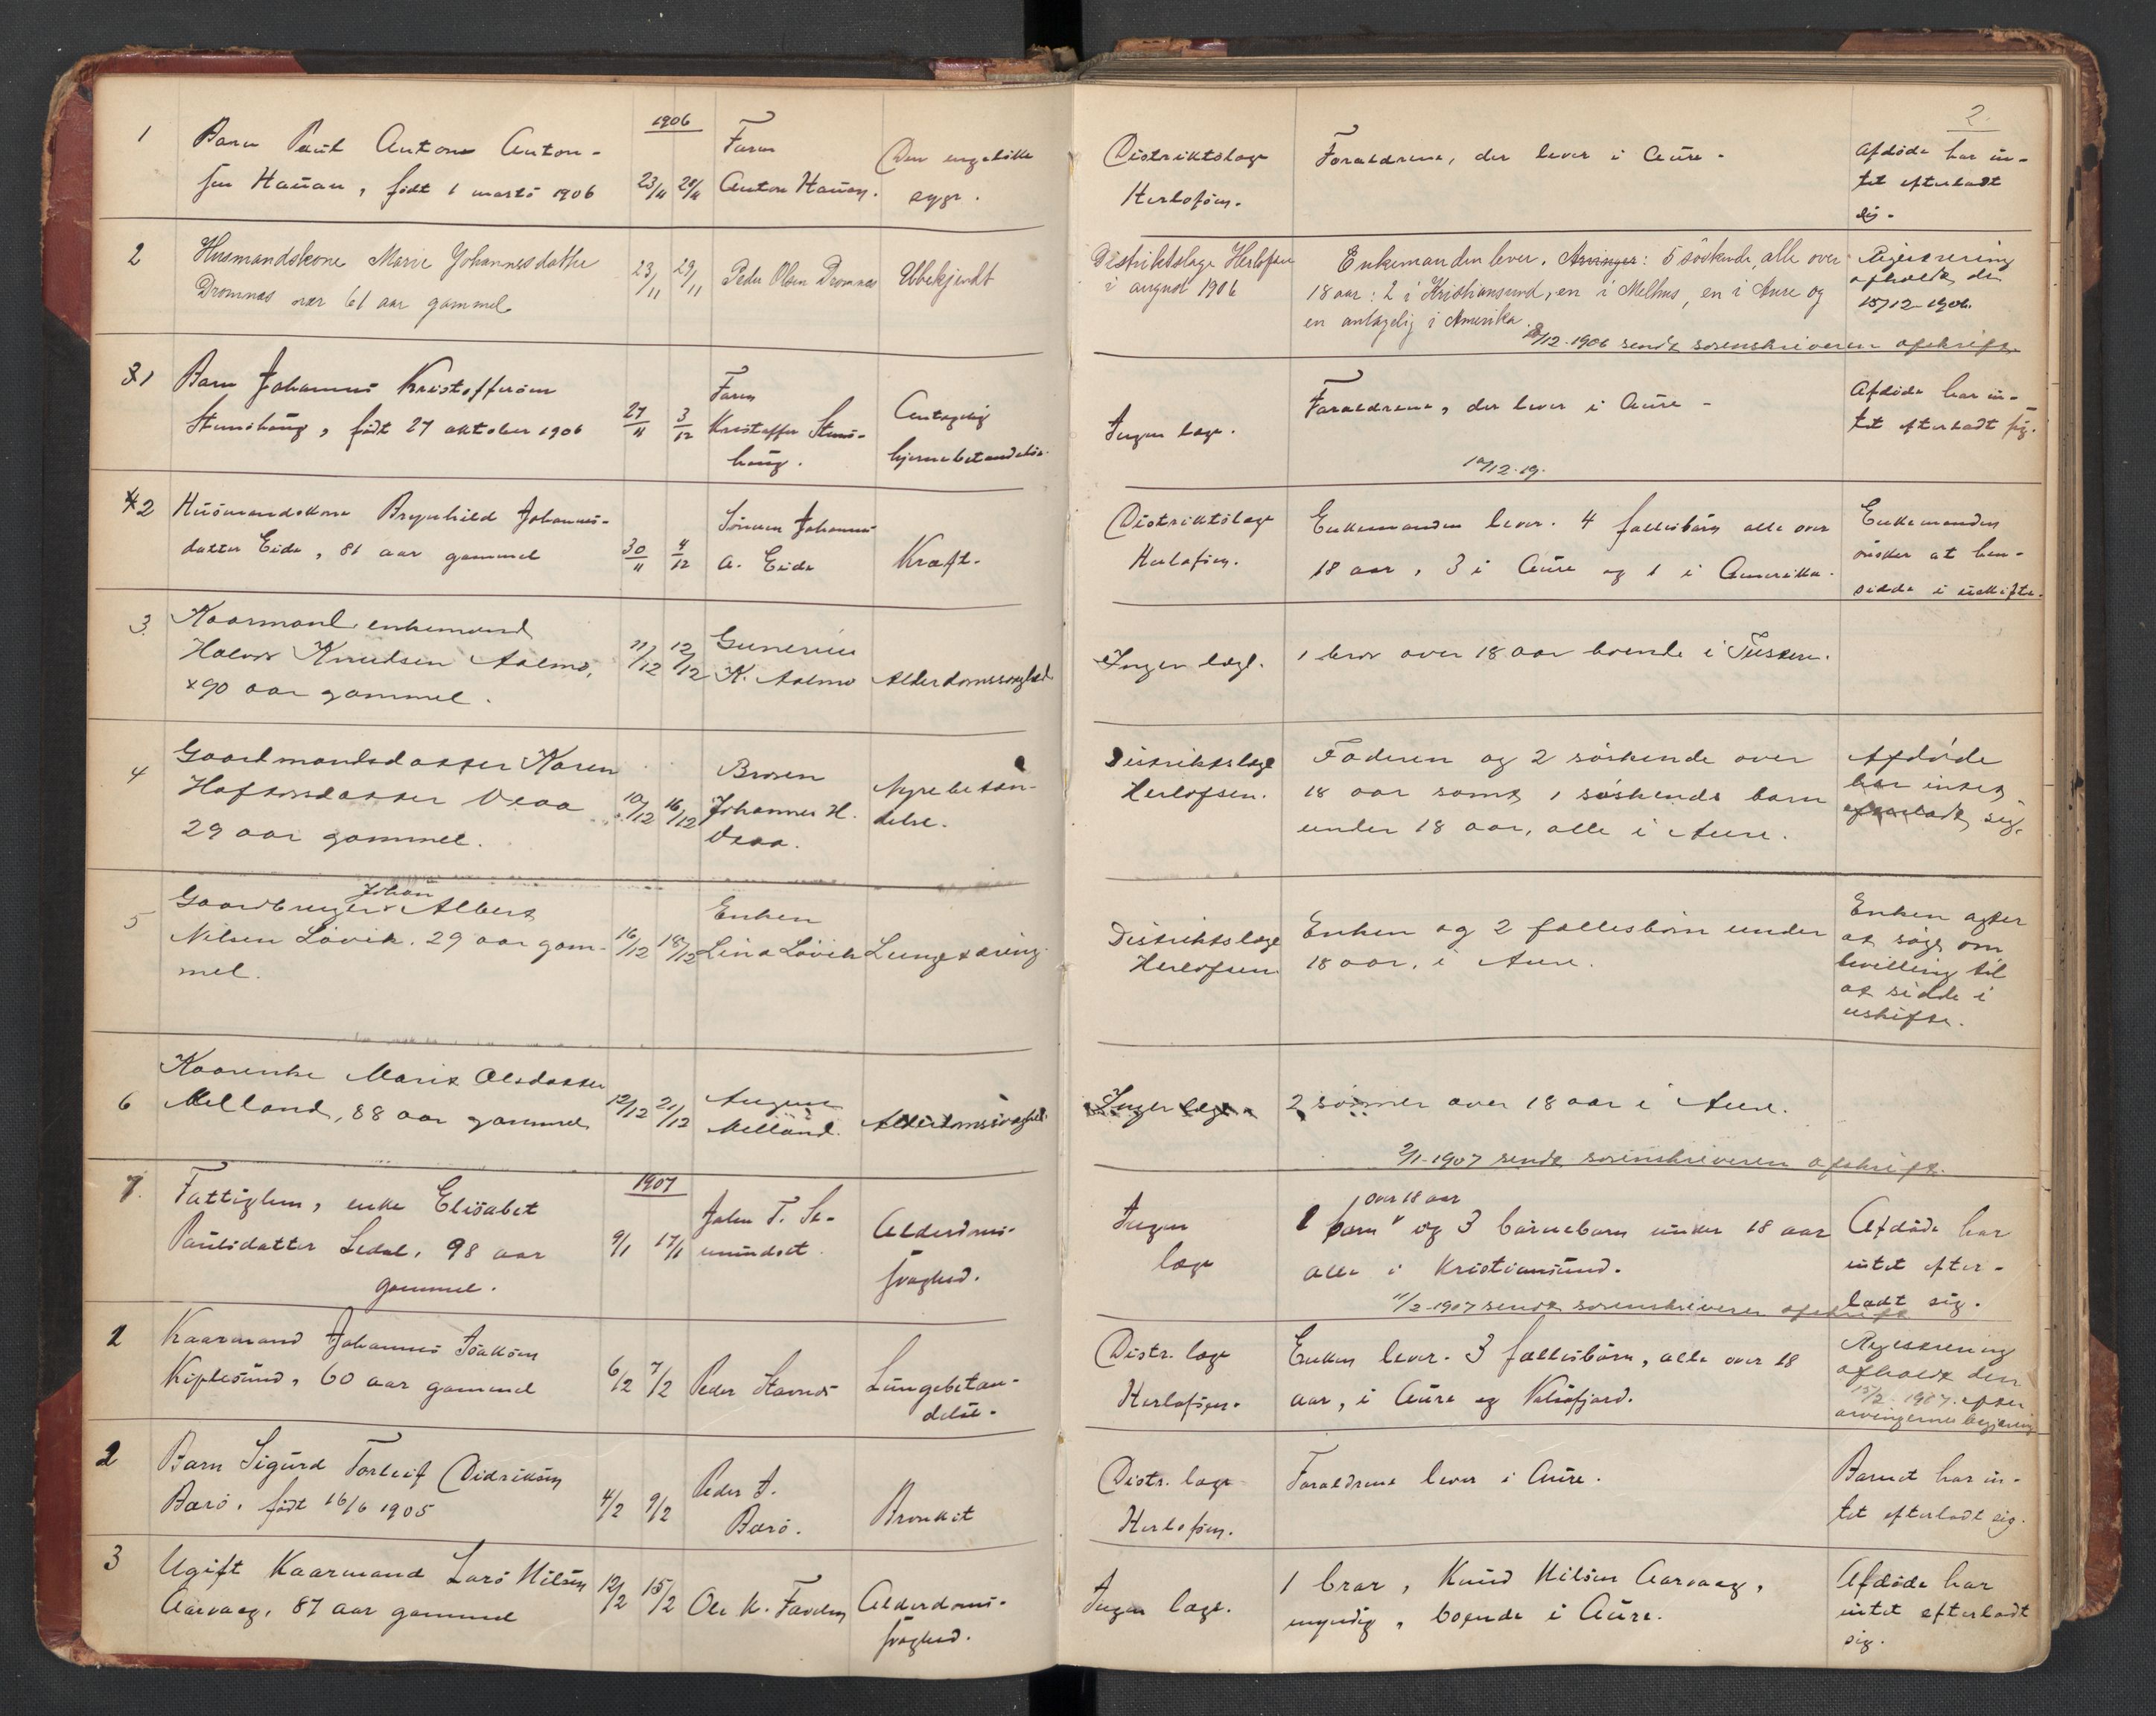 2.
1906
1 Barn Paul Anton Anton-
sen Hauan, født 1 marts 1906 23/11 28/11
Faren
Anton Hauan.
Den engelske
syge.
Distriktslæge
Herlofsen.
Forældrene, der lever i Aure.
Afdøde har in-
tet efterladt
sig.
2 Husmandskone Marie Johannesdatter
Dromnes nær 61 aar gammel
23/11 29/11
Peder Olsen Dromnes
Ubekjendt
Distriktslæge Herlofsen
i august 1906
Enkemanden lever. Arvinger: 5 søskende, alle over
18 aar: 2 i Kristiansund, en i Melhus, en i Aure og
en antagelig i Amerika.
/12-1906 sendt sorenskriveren afskrift
Registrering
afholdt den
15/12-1906.
1 Barn Johannes Kristoffersen
Stenshaug, født 27 oktober 1906
27/11 3/12
Faren
Kristoffer Stens-
haug.
Antagelig
hjernebetændelse.
Ingen læge.
Forældrene, der lever i Aure
12.19.
Afdøde har in-
tet efterladt sig.
2 Husmandskone Brynhild Johannes-
datter Eide, 81 aar gammel
30/11 4/12
Sønnen Johannes
A. Eide
Kræft.
Distriktslæge
Herlofsen.
Enkemanden lever. 4 fællesbørn alle over
18 aar, 3 i Aure og 1 i Amerika.
Enkemanden
ønsker at hen-
sidde i uskifte.
3. Kaarmand, enkemand
Halvor Knudsen Aalmo,
90 aar gammel.
11/12 12/12
Gunerius
K. Aalmo
Alderdomssvaghed
Ingen læge.
1 bror over 18 aar boende i Tusteren.
4 Gaardmandsdatter Karen
Haftorsdatter Vean
29 aar gammel.
10/12 16/12
Broren
Johannes H.
Vean.
Nyrebetæn-
delse.
Distriktslæge
Herlofsen.
Faderen og 2 søskende over
18 aar samt 1 søskende barn
under 18 aar, alle i Aure.
Afdøde
har intet
efterladt sig.
5 Gaardbruger Johan Albert
Nilsen Løvik. 29 aar gam-
mel.
16/12 18/12
Enken
Lina Løvik
Lungetæring.
Distriktslæge
Herlofsen.
Enken og 2 fællesbørn under
18 aar, i Aure.
Enken agter
at søge om
bevilling til
at sidde i
uskifte.
6 Kaarenke Marit Olsdatter
Melland, 88 aar gammel
12/12 21/12
August
Melland.
Alderdomssvaghed.
Ingen læge.
2 sønner over 18 aar i Aure.
2/1-1907 sendt sorenskriveren afskrift.
1907
7. Fattiglem, enke Elisabet
Paulsdatter Ledal, 98 aar
gammel.
9/1 17/1
John T. Le-
mundset.
Alderdoms-
svaghed.
Ingen
læge
over 18 aar
1 barn og 3 børnebørn under 18 aar
alle i Kristiansund.
11/2-1907 sendt sorenskriveren afskrift
Afdøde har
intet efter-
ladt sig.
1 Kaarmand Johannes Isaksen
Kiplesund, 60 aar gammel
6/2 7/2
Peder Stavnes
Lungebetæn-
delse.
Distr. læge
Herlofsen.
Enken lever. 3 fællesbørn, alle over 18
aar, i Aure og Valsøfjord.
Registrering
afholdt den
15/2-1907 efter
arvingernes begjæring
2 Barn Sigurd Torleif Didriksen
Bærø, født 16/6 1905
4/2 9/2
Peder A.
Bærø.
Bronkit
Distr. læge
Herlofsen.
Forældrene lever i Aure.
Barnet har in-
tet efterladt sig.
3 Ugift Kaarmand Lars Nilsen
Aarvaag, 87 aar gammel
12/2 15/2
Ole K.
Alderdoms-
svaghed.
Ingen læge.
1 bror, Knud Nilsen Aarvaag,
myndig, boende i Aure.
Afdøde har
intet efterladt
sig.